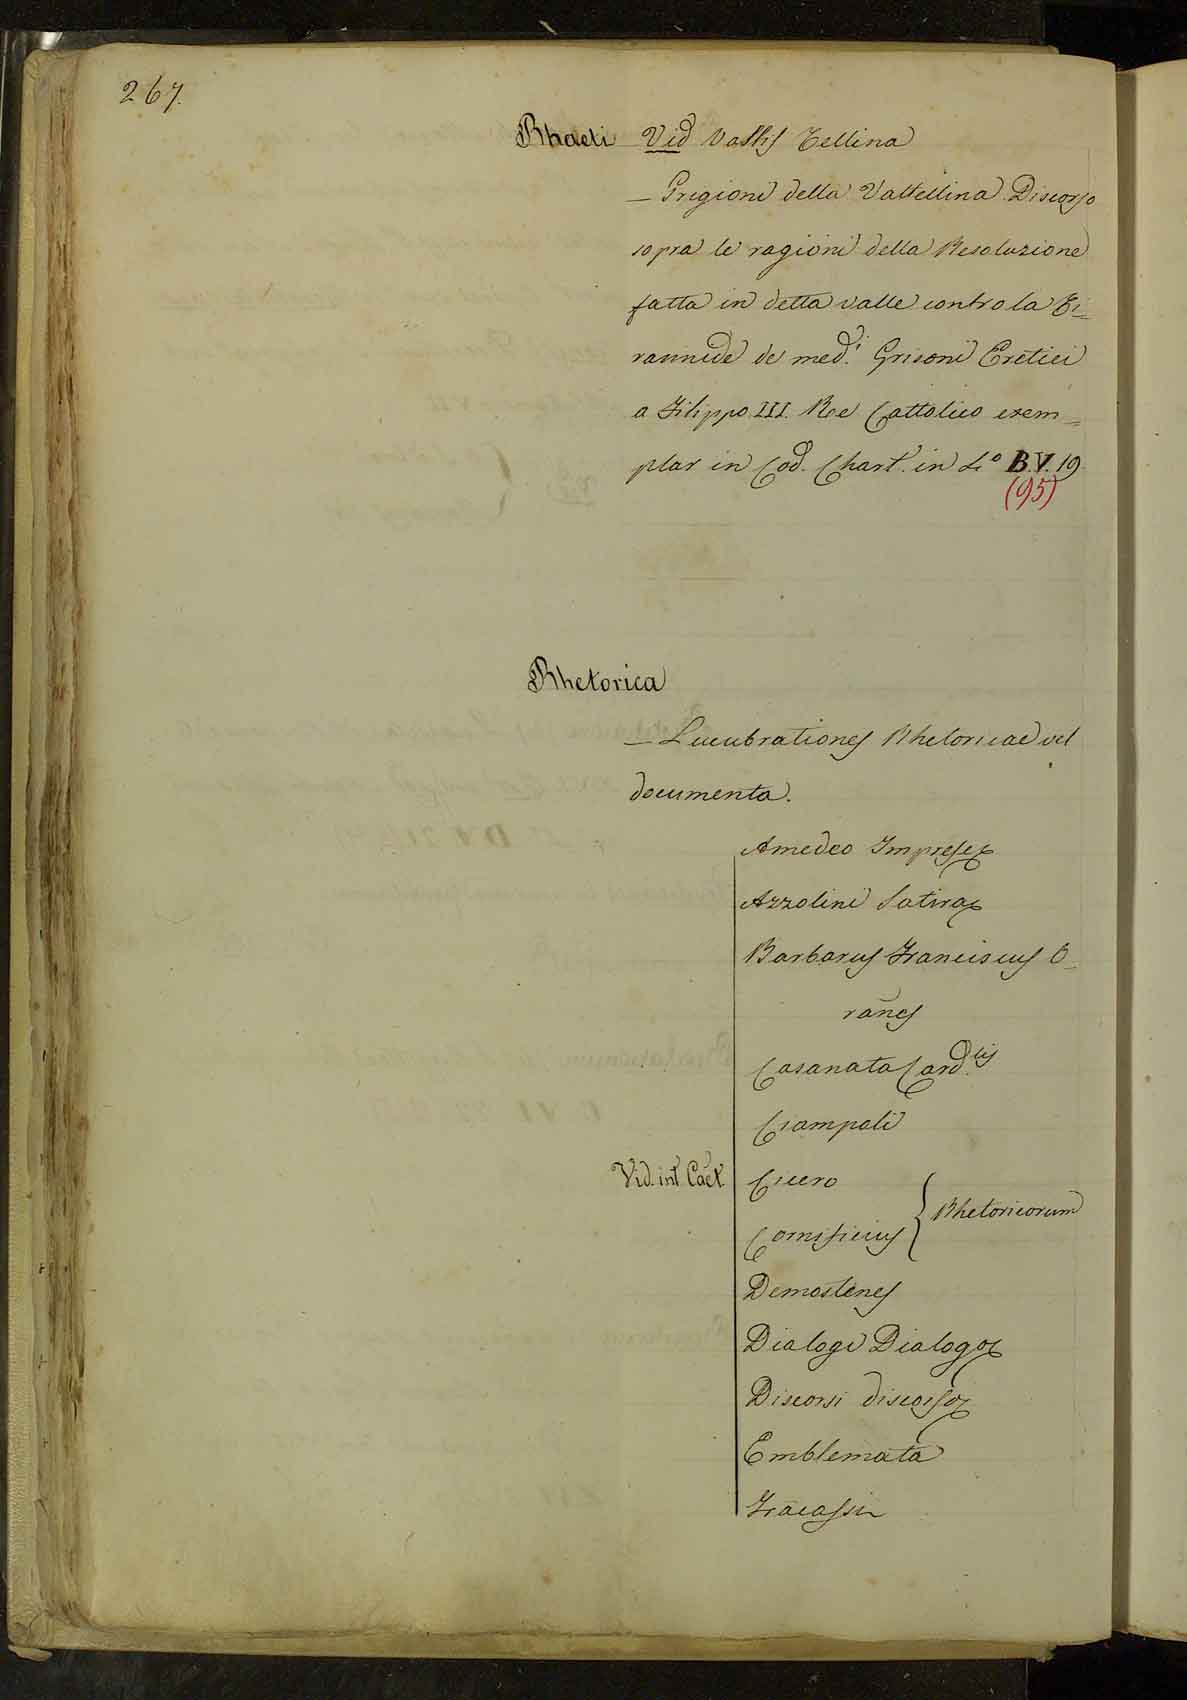 267.
Rhaeti Vid Vallis Tellina
— Grigioni della Valtellina Discorso
sopra le ragioni della Resoluzione
fatta in detta valle contro la Ti=
rannide de med.i Grisoni Eretici
a Filippo III. Re Cattolico exem=
plar in Cod. Chart. in 4.o B.V.19
(95)
Rhetorica
— Lucubrationes Rhetoricae vel
documenta.
Amedeo Imprese
Azzolini Satira
Barbarus Franciscus O_
rānes
Casanata Card.lis
Ciampoli
Vid. int Caet. Cicero
Cornificius } Rhetoricorum
Demostenes
Dialogi Dialogo
Discorsi discorso
Emblemata